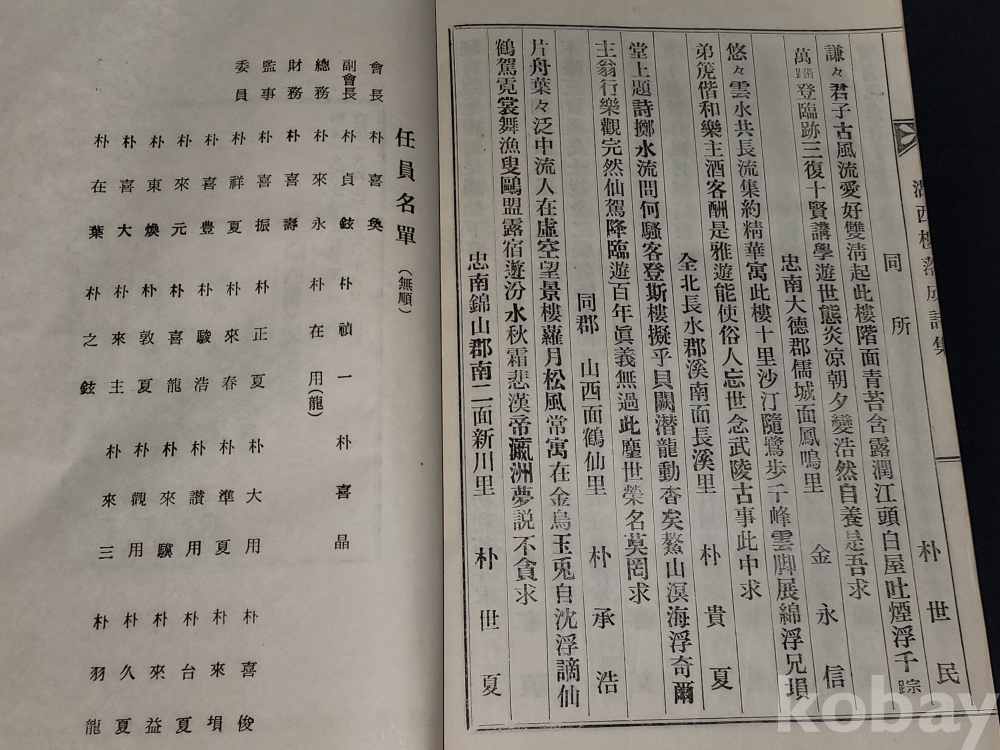 湖西樓落成詩集
同所 朴世民
謙々君子古風流愛好雙清起此樓階面青苔含露潤江頭白屋吐煙浮千踪
萬躡登臨跡三復十賢講學遊世態炎凉朝夕變浩然自養是吾求
忠南大德郡儒城面鳳鳴里 金永信
悠々雲水共長流集約精華寓此樓十里沙汀隨鷺步千峰雲脚展綿浮兄塤
弟箎偕和樂主酒客酬是雅遊能使俗人忘世念武陵古事此中求
全北長水郡溪南面長溪里 朴貴夏
堂上題詩擲水流問何騷客登斯樓擬乎貝闕潛龍動杳矣鰲山溟海浮奇爾
主翁行樂觀完然仙駕降臨遊百年眞義無過此塵世榮名莫罔求
同郡 山西面鶴仙里 朴承浩
片舟葉々泛中流人在虛空望景樓蘿月松風常寓在金烏玉兎自沈浮謫仙
鶴駕霓裳舞漁叟鷗盟露宿遊汾水秋霜悲漢帝瀛洲夢説不貪求
忠南錦山郡南二面新川里 朴世夏
任員名單(無順)
會長 朴喜奐
副會長 朴貞鉉 朴禎一 朴喜晶
總務 朴來永 朴在用(龍)
財務 朴喜壽
監事 朴喜振 朴正夏 朴大用 朴喜俊
委員 朴祥夏 朴來春 朴準夏 朴來塤
朴喜豊 朴駿浩 朴讚用 朴台夏
朴來元 朴喜龍 朴來驥 朴來益
朴東煥 朴敦夏 朴觀用 朴久夏
朴喜大 朴來主 朴來三 朴羽龍
朴在葉 朴之鉉
kobay